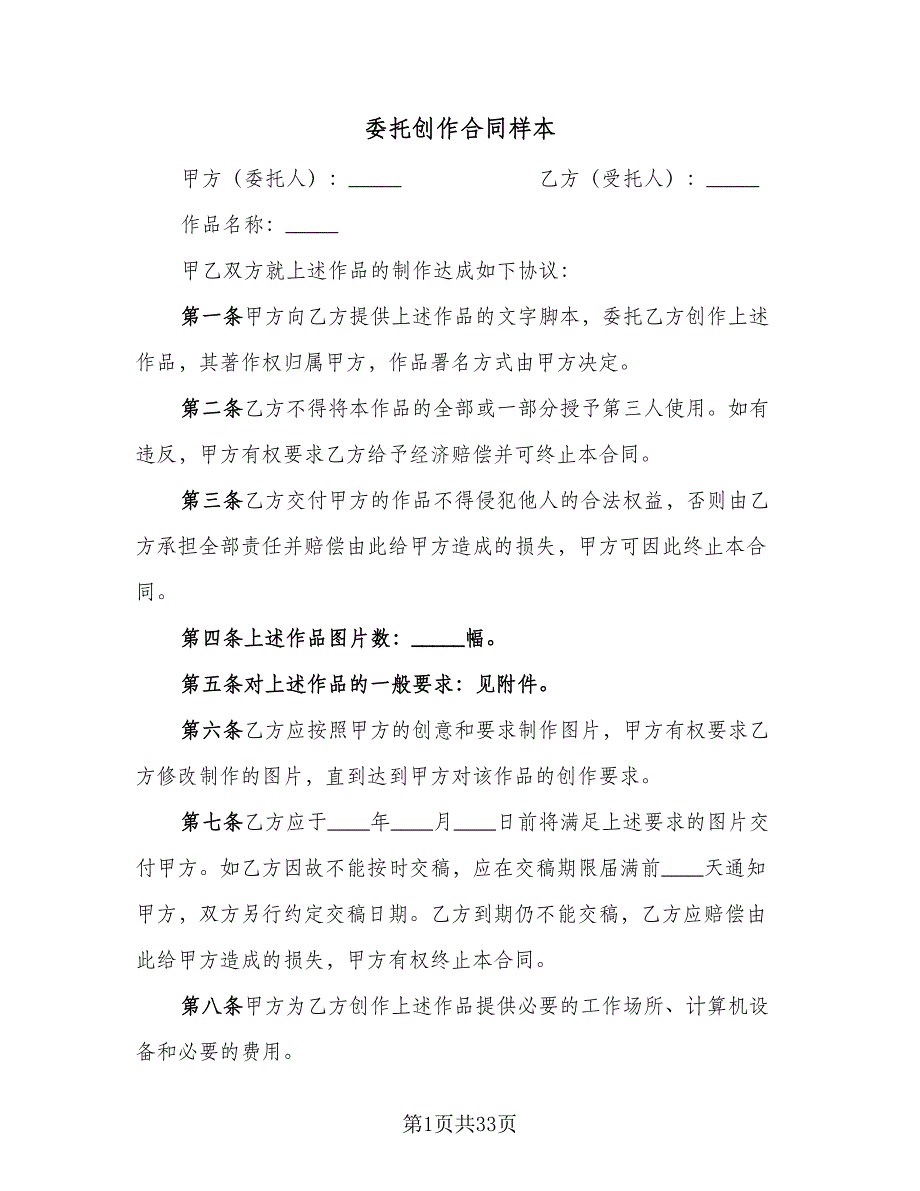 委托创作合同样本
甲方（委托人）：_____ 乙方（受托人）：_____
作品名称：_____
甲乙双方就上述作品的制作达成如下协议：
第一条甲方向乙方提供上述作品的文字脚本，委托乙方创作上述
作品，其著作权归属甲方，作品署名方式由甲方决定。
第二条乙方不得将本作品的全部或一部分授予第三人使用。如有
违反，甲方有权要求乙方给予经济赔偿并可终止本合同。
第三条乙方交付甲方的作品不得侵犯他人的合法权益，否则由乙
方承担全部责任并赔偿由此给甲方造成的损失，甲方可因此终止本合
同。
第四条上述作品图片数：_____幅。
第五条对上述作品的一般要求：见附件。
第六条乙方应按照甲方的创意和要求制作图片，甲方有权要求乙
方修改制作的图片，直到达到甲方对该作品的创作要求。
第七条乙方应于____年____月____日前将满足上述要求的图片交
付甲方。如乙方因故不能按时交稿，应在交稿期限届满前____天通知
甲方，双方另行约定交稿日期。乙方到期仍不能交稿，乙方应赔偿由
此给甲方造成的损失，甲方有权终止本合同。
第八条甲方为乙方创作上述作品提供必要的工作场所、计算机设
备和必要的费用。
第1页共33页